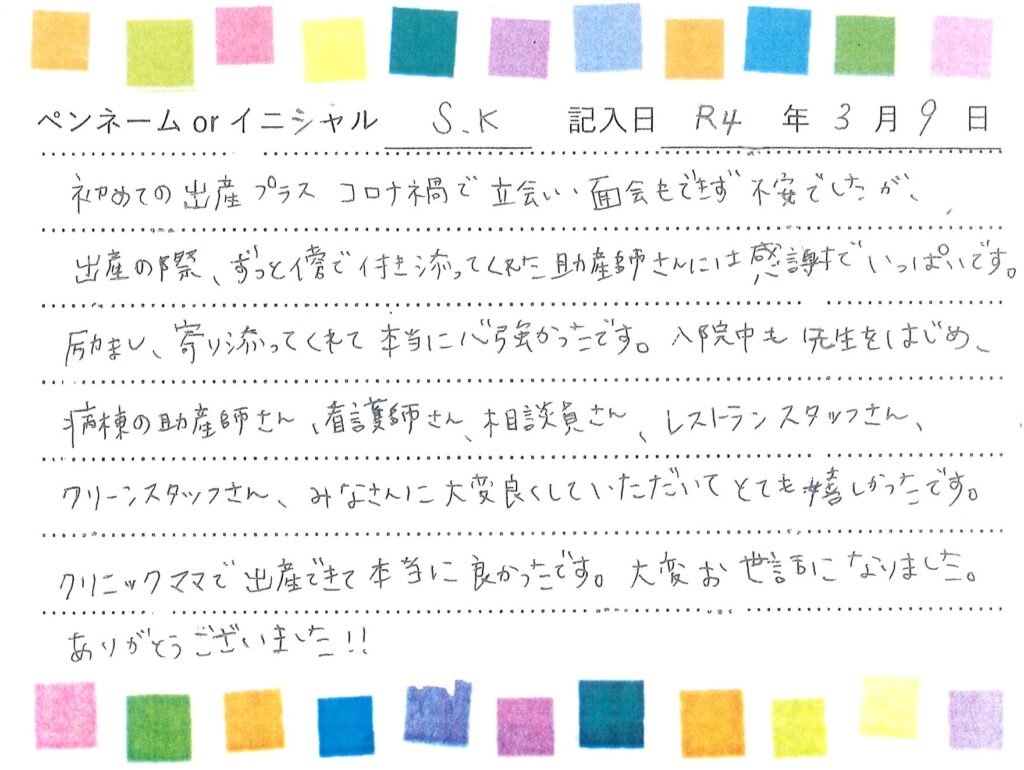 ペンネーム or イニシャル S.K 記入日 R4 年 3 月 9 日
初めての出産プラス コロナ禍で立会い・面会もできず不安でしたが、
出産の際、ずっと傍で付き添ってくれた助産師さんには感謝でいっぱいです。
励まし、寄り添ってくれて本当に心強かったです。入院中も先生をはじめ、
病棟の助産師さん、看護師さん、相談員さん、レストランスタッフさん、
クリーンスタッフさん、みなさんに大変良くしていただいてとても嬉しかったです。
クリニックママで出産できて本当に良かったです。大変お世話になりました。
ありがとうございました!!